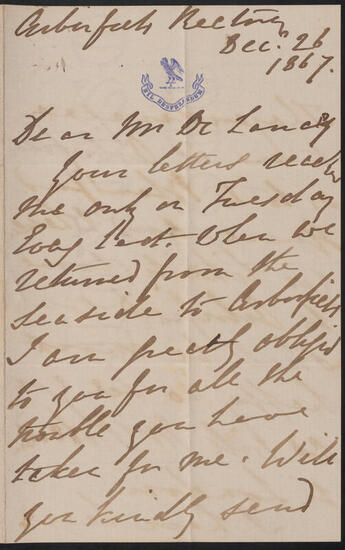 Arborfield Rectory
Dec. 26
1867.
NIL DESPERANDUM
Dear Mr De
Your letters reached
me only on Tuesday
Evg last. When we
returned from the
seaside to Arborfield
I am greatly obliged
to you for all the
trouble you have
taken for me. Will
you kindly send